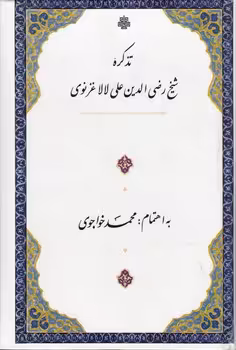 تذکره
شیخ رضی الدین علی لالا غزنوی
به اهتمام: محمد خواجوی